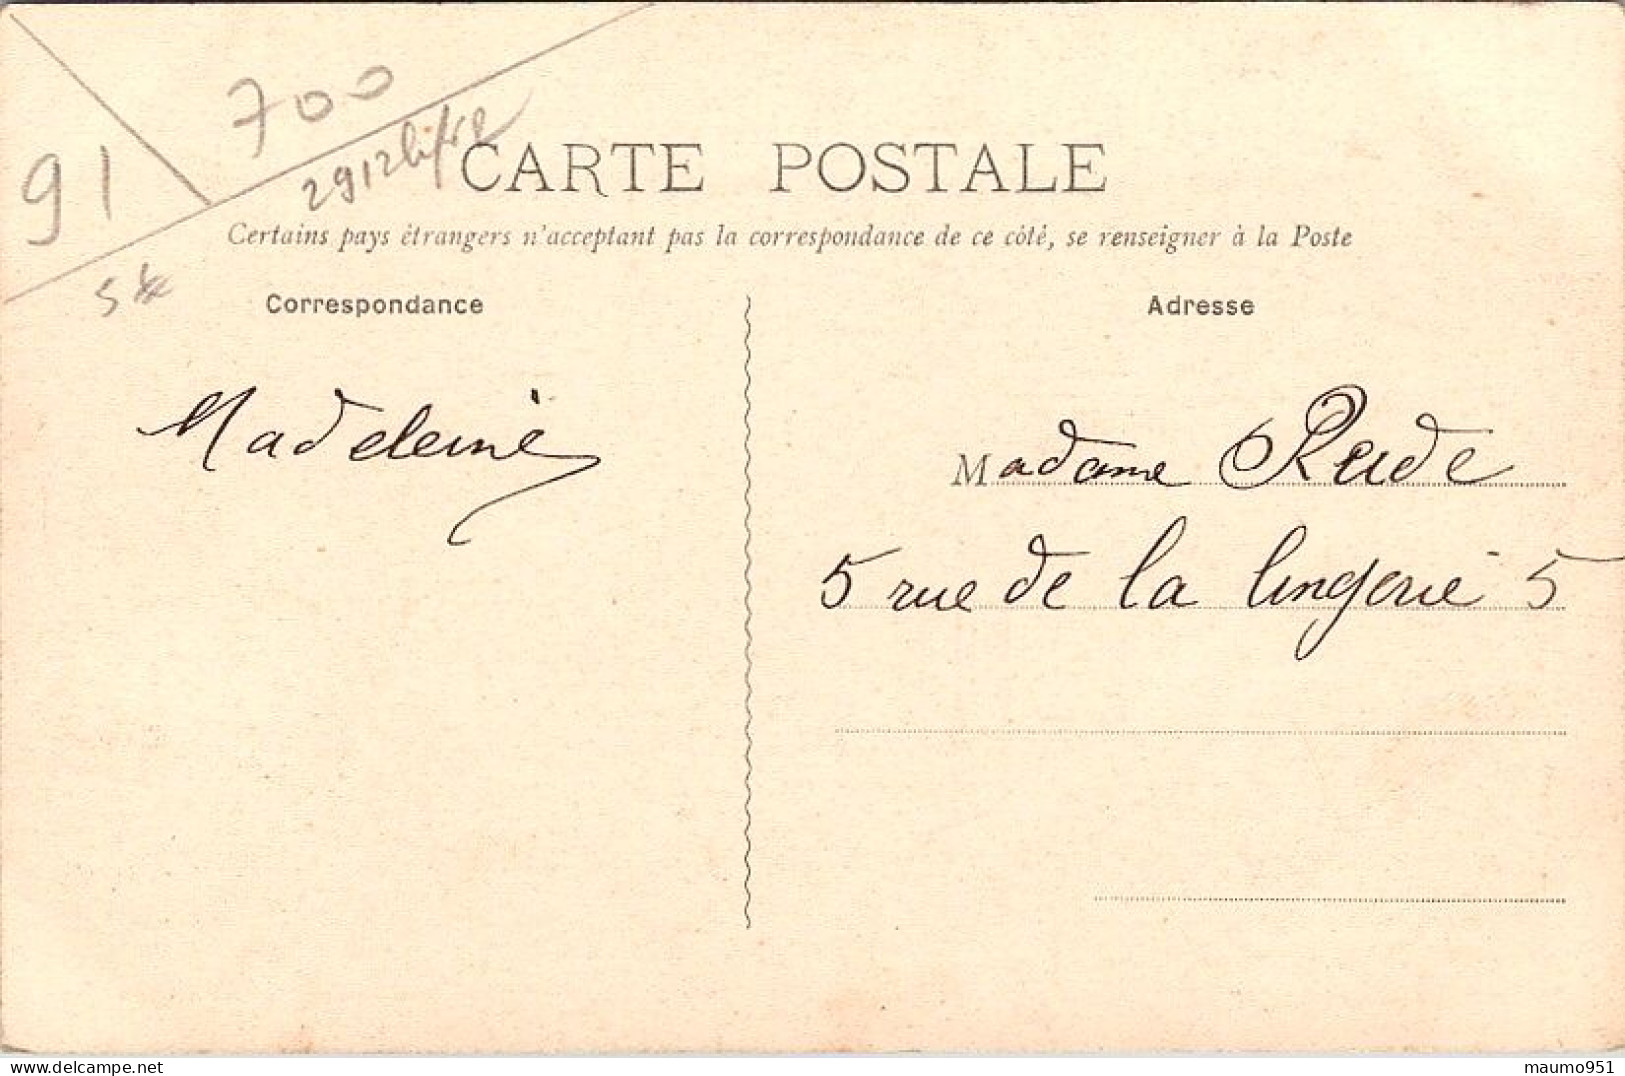 91
700
CARTE POSTALE
Certains pays étrangers n'acceptant pas la correspondance de ce côté, se renseigner à la Poste
Correspondance
Adresse
Madeleine
Madame Rude
5 rue de la lingerie 5
delcampe.net
maumo951